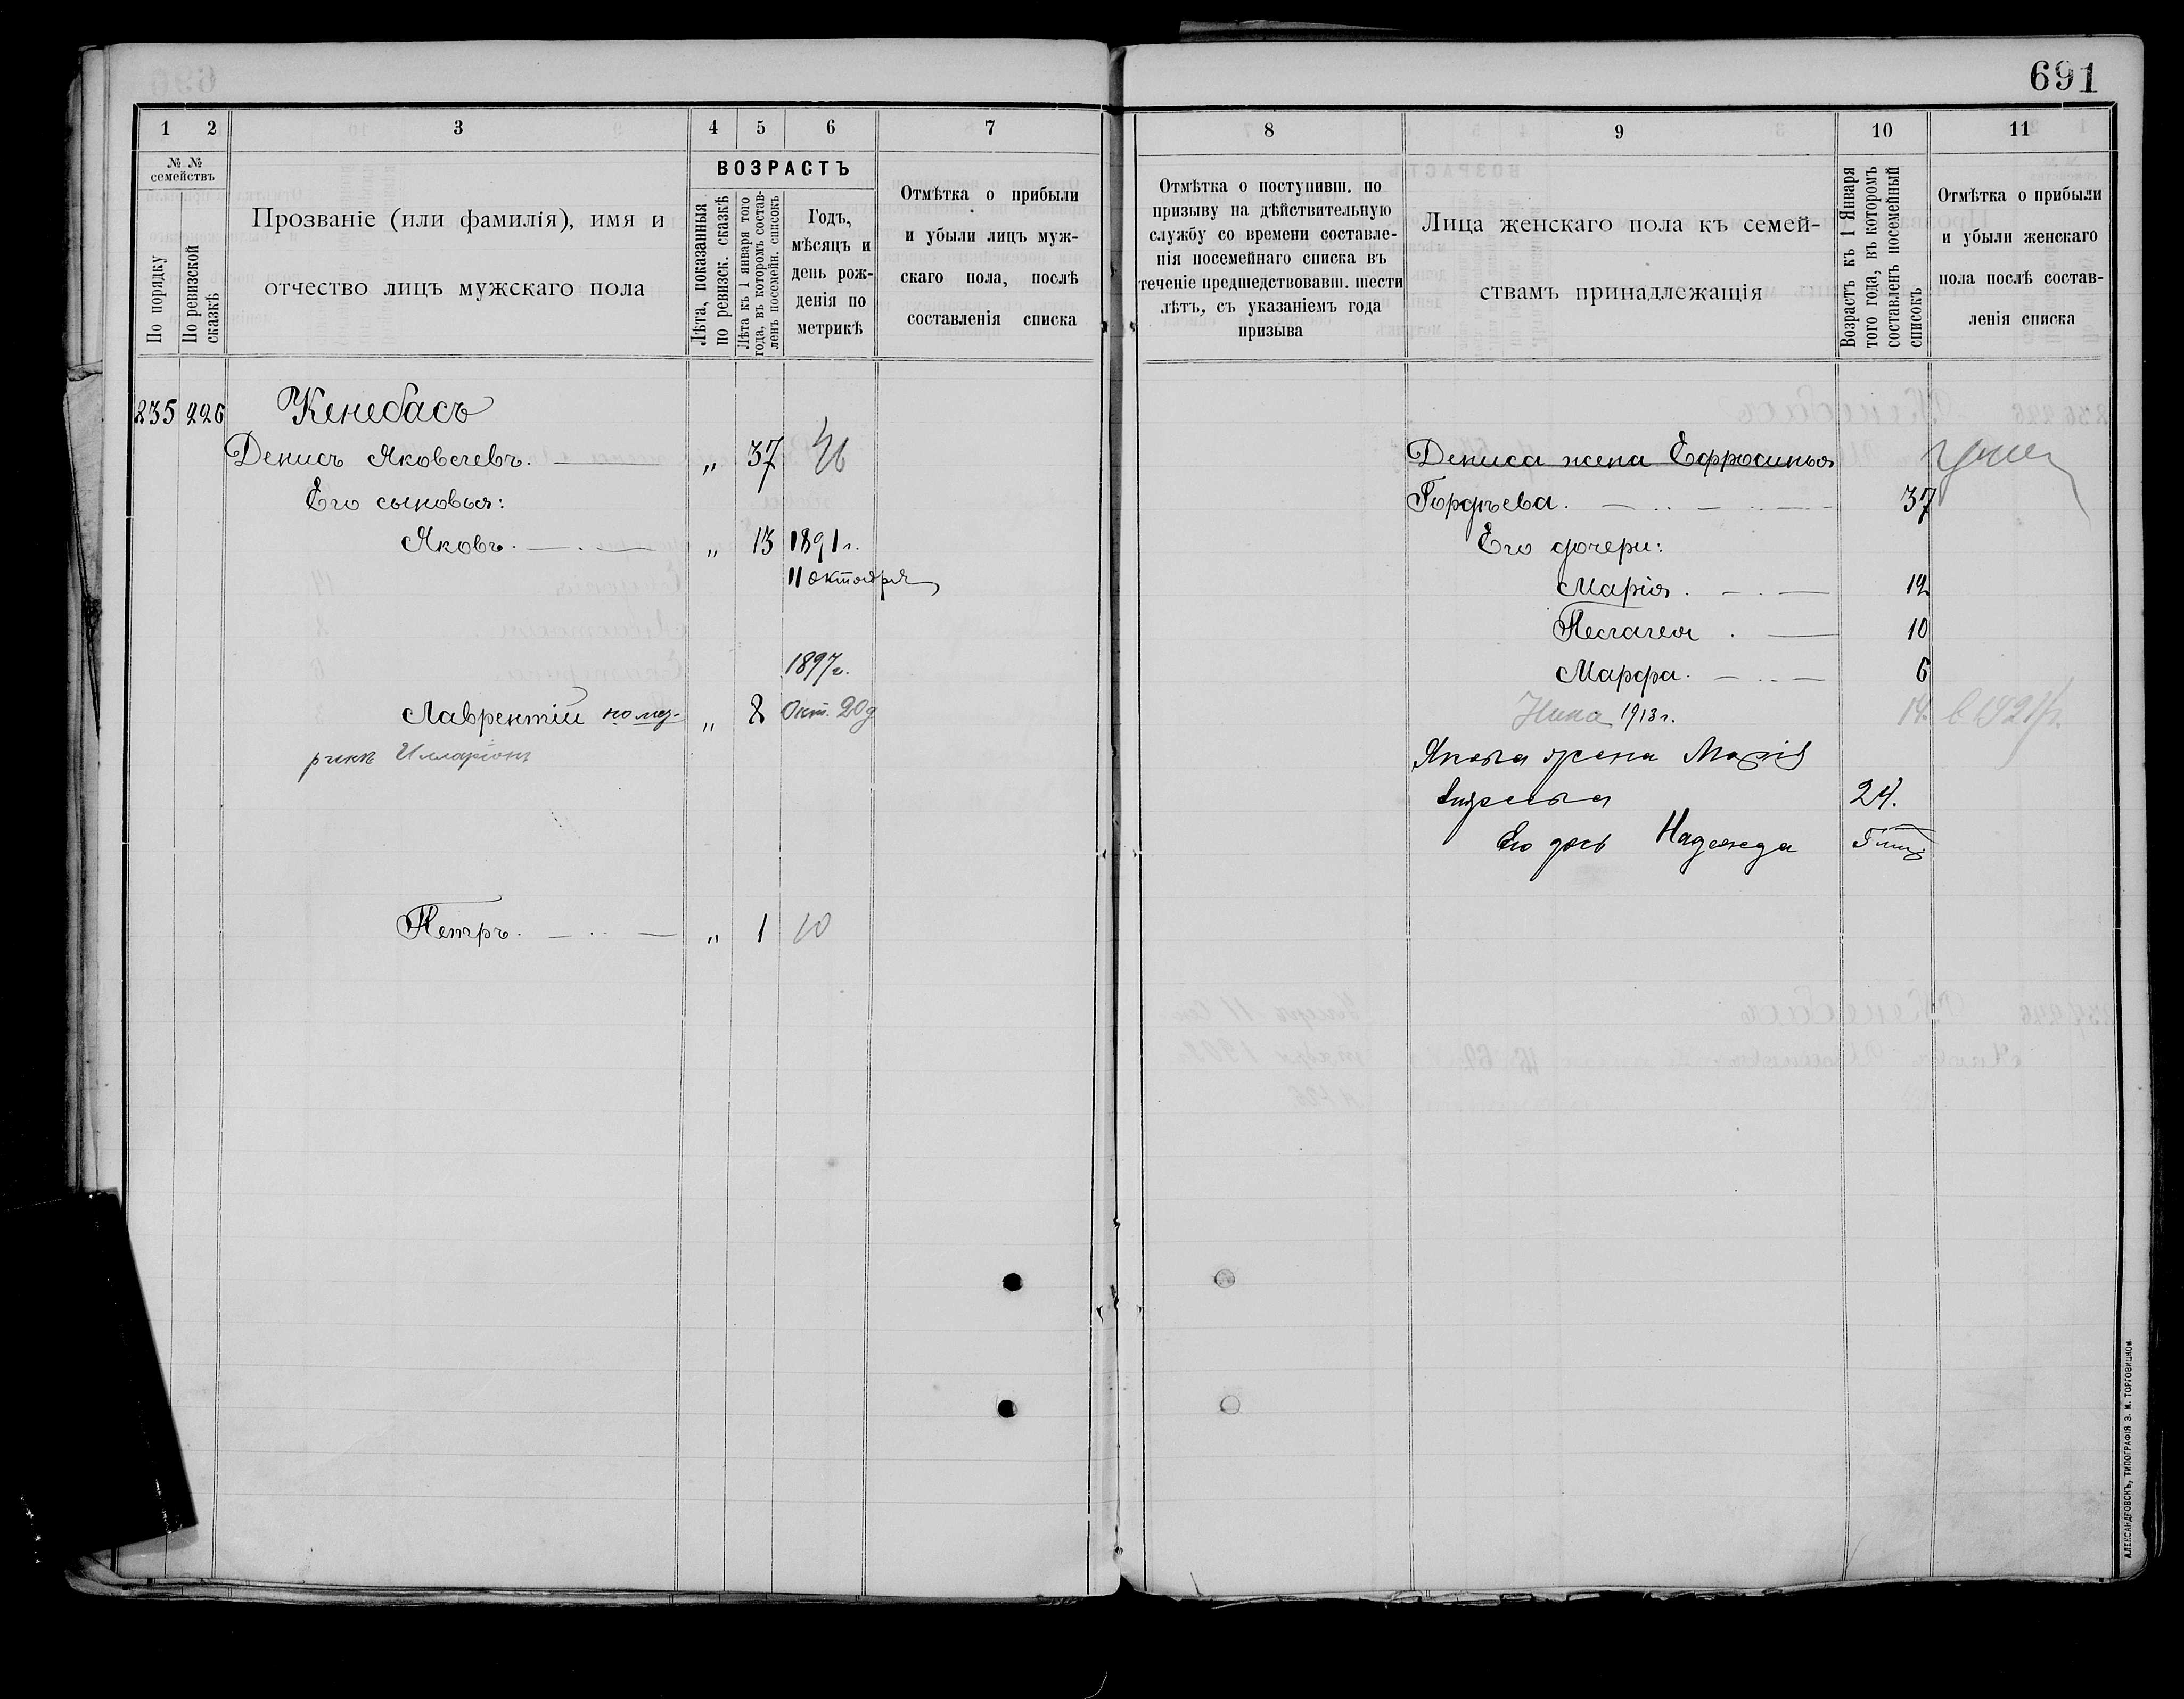 691
1 2 3 4 5 6 7
№ № семействъ
По порядку
По ревизской сказкѣ
Прозваніе (или фамилія), имя и
отчество лицъ мужскаго пола
ВОЗРАСТЪ
Лѣта, показанныя
по ревизск. сказкѣ
Лѣта къ 1 января того
года, въ которомъ состав-
ленъ посемейн. списокъ
Годъ,
мѣсяцъ и
день рож-
денія по
метрикѣ
Отмѣтка о прибыли
и убыли лицъ муж-
скаго пола, послѣ
составленія списка
235 226 Кенебасъ
Денисъ Яковлевъ. „ 37 46
Его сыновья:
Яковъ. „ 13 1891 г.
11 октября
1897 г.
Лаврентій по мет- „ 8 Окт. 20 д
рикѣ Илларіонъ
Петръ. „ 1 10
8 9 10 11
Отмѣтка о поступивш. по
призыву на дѣйствительную
службу со времени составле-
нія посемейнаго списка въ
теченіе предшедствовавш. шести
лѣтъ, съ указаніемъ года
призыва
Лица женскаго пола къ семей-
ствамъ принадлежащія
Возрастъ къ 1 Января
того года, въ которомъ
составленъ посемейный
списокъ
Отмѣтка о прибыли
и убыли женскаго
пола послѣ состав-
ленія списка
Дениса жена Ефросинья
Гордѣева. 37
Его дочери:
Марія. 12
Пелагея. 10
Марфа. 6
Нина 1913 г. 14. в 1921 г.
Якова жена Марія
24.
Его дочь Надежда
АЛЕКСАНДРОВСКЪ, ТИПОГРАФІЯ З. М. ТОРГОВИЦКОЙ